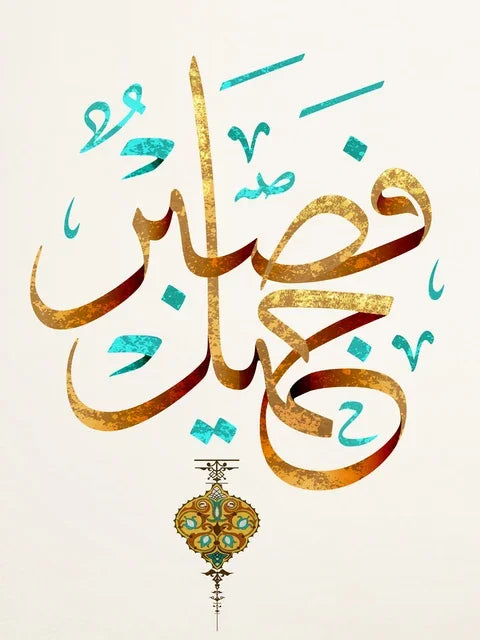 فَصَبْرٌ
جَمِيلٌ